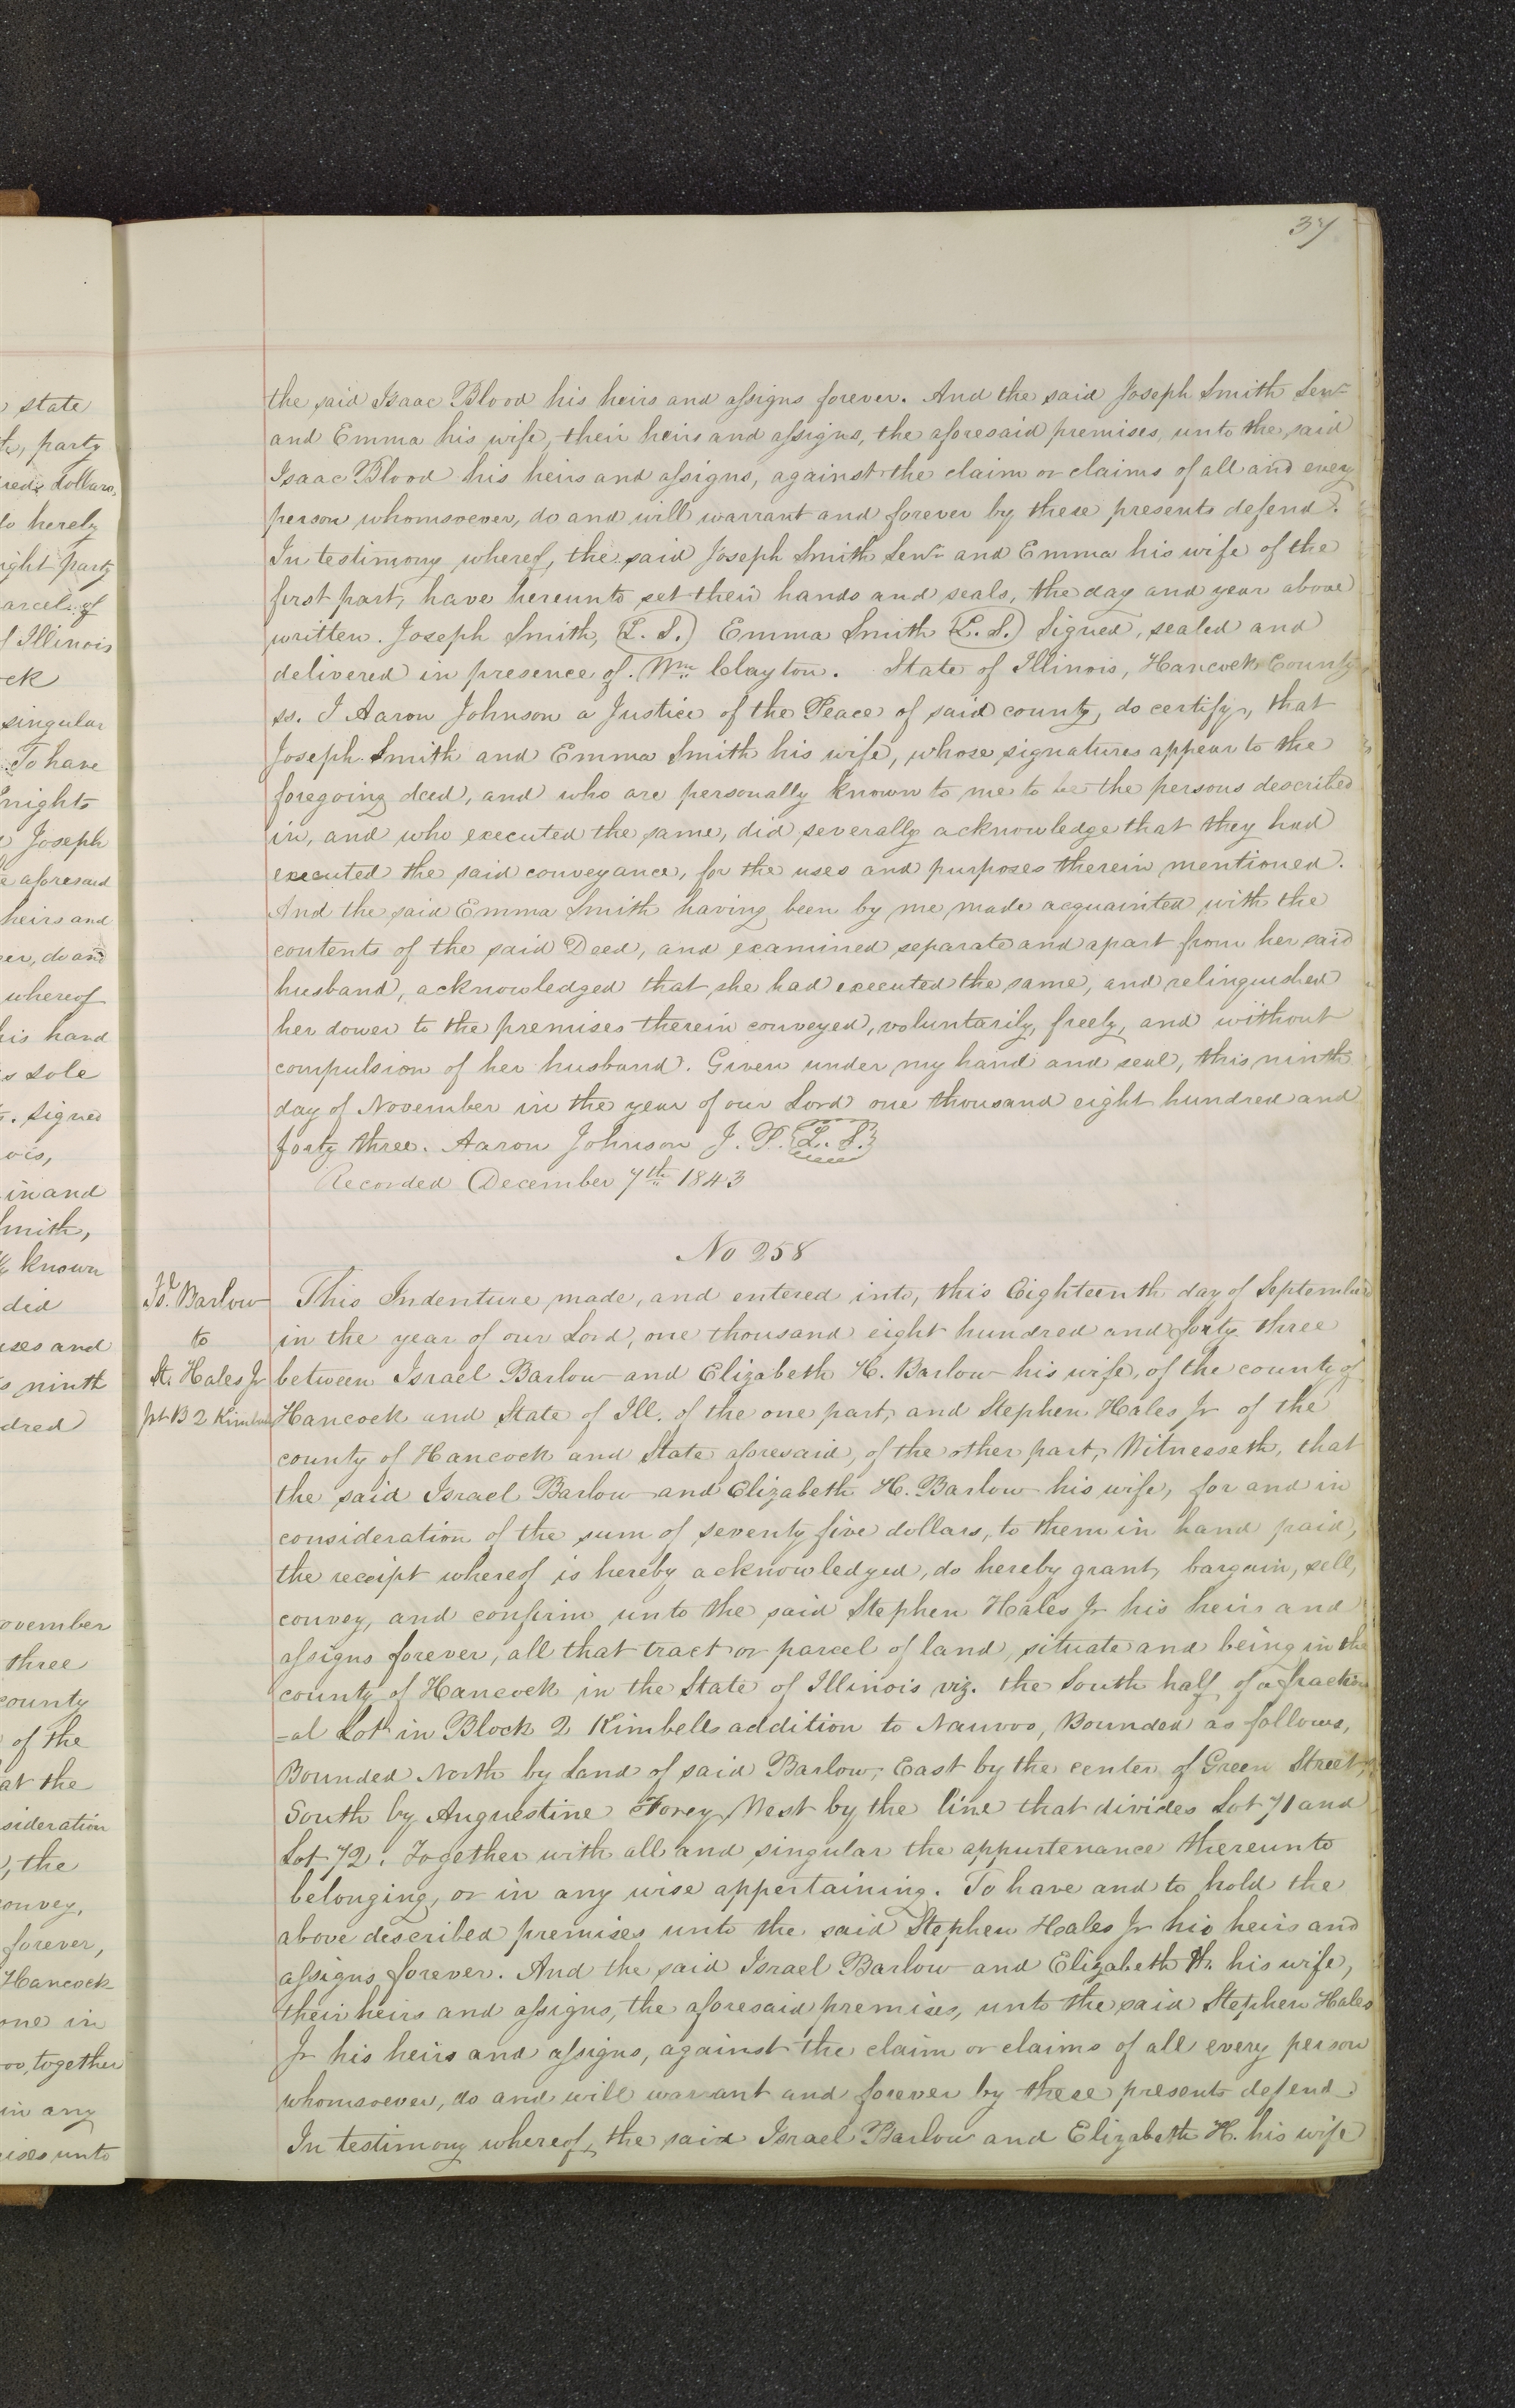 37
state
party
dollars,
do hereby
right party
parcel of
Illinois
singular
To have
Joseph
aforesaid
heirs and
do and
whereof
his hand
Sole
Signed
in and
Smith,
known
did
uses and
ninth
November
three
county
of the
at the
sideration
, the
convey,
forever,
Hancock
one in
together
in any
unto
the said Isaac Blood his heirs and assigns forever. And the said Joseph Smith Senr
and Emma his wife, their heirs and assigns, the aforesaid premises, unto the said
Isaac Blood his heirs and assigns, against the claim or claims of all and every
person whomsoever, do and will warrant and forever by these presents defend.
In testimony whereof, the said Joseph Smith Senr and Emma his wife of the
first part, have hereunto set their hands and seals, the day and year above
written. Joseph Smith, (L. S.) Emma Smith (L. S.) Signed, sealed and
delivered in presence of. Wm. Clayton. State of Illinois, Hancock County
ss. I Aaron Johnson a Justice of the Peace of said county, do certify, that
Joseph Smith and Emma Smith his wife, whose signatures appear to the
foregoing deed, and who are personally known to me to be the persons described
in, and who executed the same, did severally acknowledge that they had
executed the said conveyance, for the uses and purposes therein mentioned.
And the said Emma Smith having been by me made acquainted with the
contents of the said Deed, and examined separate and apart from her said
husband, acknowledged that she had executed the same, and relinquished
her dower to the premises therein conveyed, voluntarily, freely, and without
compulsion of her husband. Given under my hand and seal, this ninth
day of November in the year of our Lord one thousand eight hundred and
forty three. Aaron Johnson J. P. (L. S.)
Recorded December 7th 1843
No 258
Isl. Barlow
to
St. Hales Jr
pt B 2 Kimball
This Indenture made, and entered into, this Eighteenth day of September
in the year of our Lord, one thousand eight hundred and forty three
between Israel Barlow and Elizabeth H. Barlow his wife, of the county of
Hancock and State of Ill. of the one part, and Stephen Hales Jr of the
county of Hancock and State aforesaid, of the other part, Witnesseth, that
the said Israel Barlow and Elizabeth H. Barlow his wife, for and in
consideration of the sum of seventy five dollars, to them in hand paid,
the receipt whereof is hereby acknowledged, do hereby grant, bargain, sell,
convey, and confirm unto the said Stephen Hales Jr his heirs and
assigns forever, all that tract or parcel of land, situate and being in the
county of Hancock in the State of Illinois viz. the South half of a fraction
=al Lot in Block 2 Kimbells addition to Nauvoo, Bounded as follows,
Bounded North by Land of said Barlow, East by the center of Green Street,
South by Anguestine Forey West by the line that divides Lot 71 and
Lot 72. Together with all and singular the appurtenance thereunto
belonging, or in any wise appertaining. To have and to hold the
above described premises unto the said Stephen Hales Jr his heirs and
assigns forever. And the said Israel Barlow and Elizabeth H. his wife,
their heirs and assigns, the aforesaid premises, unto the said Stephen Hales
Jr his heirs and assigns, against the claim or claims of all every person
whomsoever, do and will warrant and forever by these presents defend.
In testimony whereof, the said Israel Barlow and Elizabeth H. his wife